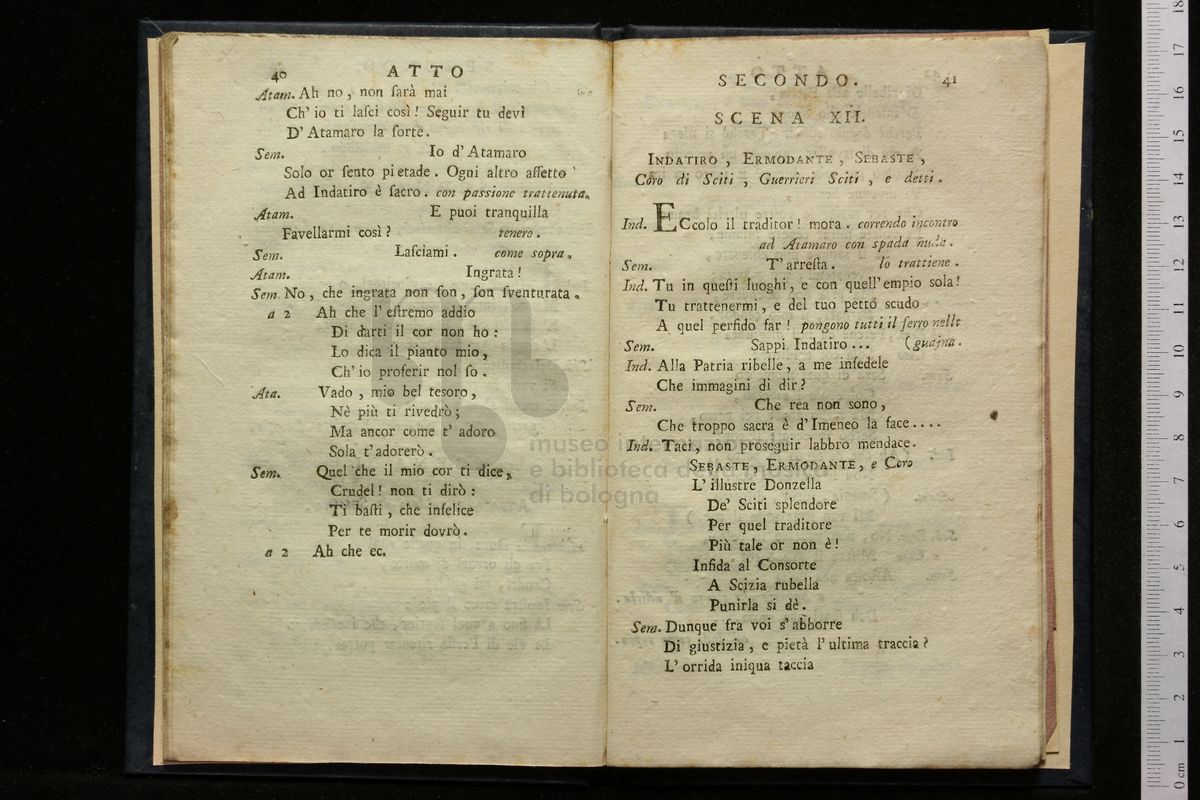 40 ATTO
Atam. Ah no, non ſarà mai
Ch' io ti laſci così! Seguir tu devi
D' Atamaro la ſorte.
Sem. Io d' Atamaro
Solo or ſento pietade. Ogni altro affetto
Ad Indatiro è ſacro. con passione trattenuta.
Atam. E puoi tranquilla
Favellarmi così? tenero.
Sem. Laſciami. come sopra.
Atam. Ingrata!
Sem. No, che ingrata non ſon, ſon ſventurata.
a 2 Ah che l' eſtremo addio
Di darti il cor non ho:
Lo dica il pianto mio,
Ch' io proferir nol ſo.
Ata. Vado, mio bel tesoro,
Nè più ti rivedrò;
Ma ancor come t' adoro
Sola t' adorerò.
Sem. Quel che il mio cor ti dice,
Crudel! non ti dirò:
Ti baſti, che infelice
Per te morir dovrò.
a 2 Ah che ec.
SECONDO. 41
SCENA XII.
INDATIRO, ERMODANTE, SEBASTE,
Coro di Sciti, Guerrieri Sciti, e detti.
Ind. ECcolo il traditor! mora. correndo incontro
ad Atamaro con spada nuda.
Sem. T' arreſta. lo trattiene.
Ind. Tu in queſti luoghi, e con quell' empio sola!
Tu trattenermi, e del tuo petto scudo
A quel perfido far! pongono tutti il ferro nella
Sem. Sappi Indatiro... (guajna.
Ind. Alla Patria ribelle, a me infedele
Che immagini di dir?
Sem. Che rea non sono,
Che troppo sacra è d' Imeneo la face....
Ind. Taci, non proseguir labbro mendace.
SEBASTE, ERMODANTE, e Coro
L' illustre Donzella
De' Sciti splendore
Per quel traditore
Più tale or non è!
Infida al Consorte
A Scizia rubella
Punirla si dè.
Sem. Dunque fra voi s' abborre
Di giustizia, e pietà l' ultima traccia?
L' orrida iniqua taccia
museo internazionale
e biblioteca della musica
di bologna